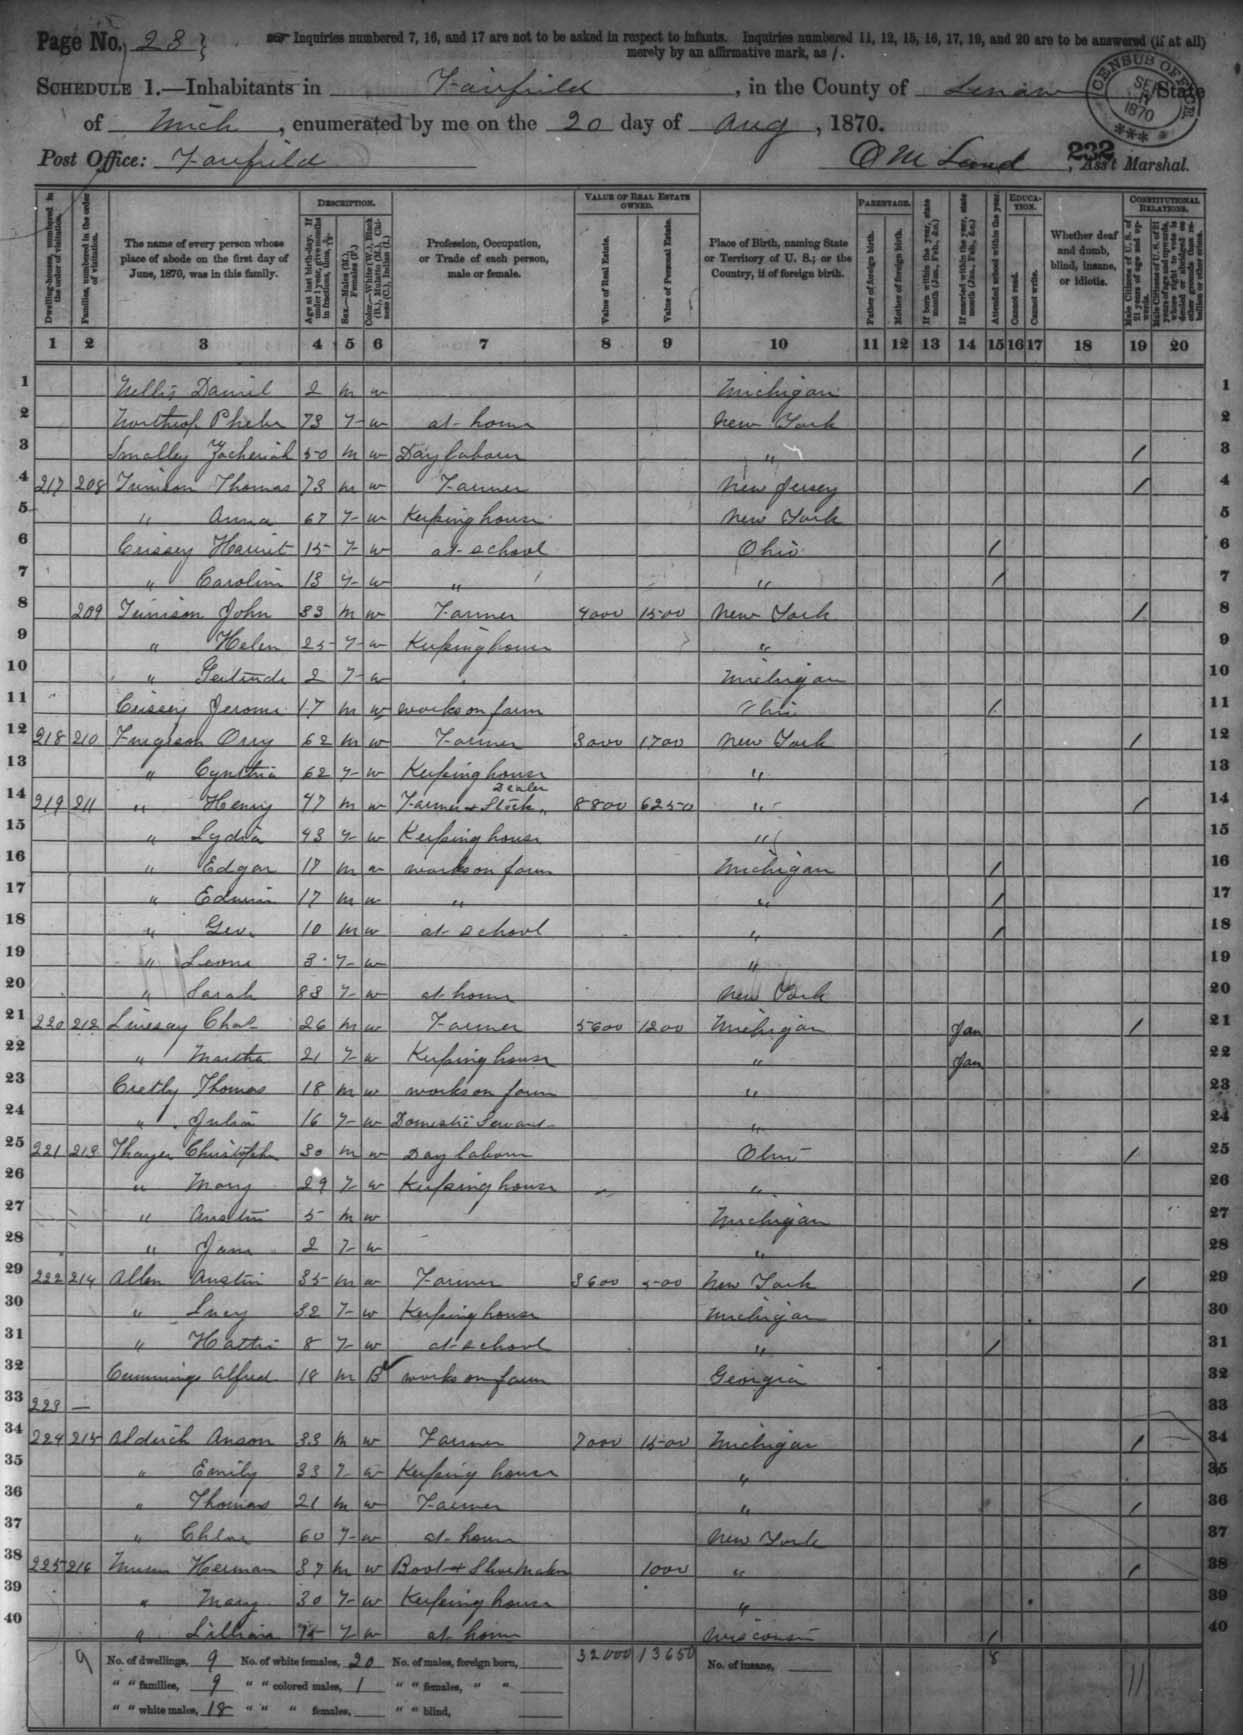 Page No. 23
Inquiries numbered 7, 16, and 17 are not to be asked in respect to infants. Inquiries numbered 11, 12, 15, 16, 17, 19, and 20 are to be answered (if at all)
merely by an affirmative mark, as /.
SCHEDULE 1.—Inhabitants in Fairfield, in the County of Lenawee, State
of Mich, enumerated by me on the 20 day of Aug, 1870.
CENSUS OFFICE 1870
Post Office: Fairfield
232
O M Land, Ass't Marshal.
DESCRIPTION. VALUE OF REAL ESTATE OWNED. PARENTAGE. EDUCATION. CONSTITUTIONAL RELATIONS.
Dwelling-houses, numbered in the order of visitation.
Families, numbered in the order of visitation.
The name of every person whose place of abode on the first day of June, 1870, was in this family.
Age at last birth-day. If under 1 year, give months in fractions, thus, 3/12
Sex.—Males (M.), Females (F.)
Color.—White (W.), Black (B.), Mulatto (M.), Chinese (C.), Indian (I.)
Profession, Occupation, or Trade of each person, male or female.
Value of Real Estate.
Value of Personal Estate.
Place of Birth, naming State or Territory of U. S.; or the Country, if of foreign birth.
Father of foreign birth.
Mother of foreign birth.
If born within the year, state month (Jan., Feb., &c.)
If married within the year, state month (Jan., Feb., &c.)
Attended school within the year.
Cannot read.
Cannot write.
Whether deaf and dumb, blind, insane, or idiotic.
Male Citizens of U. S. of 21 years of age and upwards.
Male Citizens of U. S. of 21 years of age and upwards, where right to vote is denied or abridged on other grounds than rebellion or other crime.
1 2 3 4 5 6 7 8 9 10 11 12 13 14 15 16 17 18 19 20
1 Nellis Daniel 2 m w Michigan 1
2 Northrop Phebe 73 F w at home New York 2
3 Smalley Zacheriah 50 m w Day labour " / 3
4 217 208 Tunison Thomas 73 m w Farmer New Jersey / 4
5 " Anna 67 F w Keeping house New York 5
6 Crissey Harriet 15 F w at school Ohio / 6
7 " Carolin 13 F w " " / 7
8 209 Tunison John 33 m w Farmer 4000 1500 New York / 8
9 " Helen 25 F w Keeping house " 9
10 " Gertrude 2 F w Michigan 10
11 Crissey Jerome 17 m w works on farm Ohio / 11
12 218 210 Furgison Orry 62 m w Farmer 3000 1700 New York / 12
13 " Cynthia 62 F w Keeping house " 13
14 219 211 " Henry 47 m w Farmer + Stock Dealer 8800 6250 " / 14
15 " Lydia 43 F w Keeping house " 15
16 " Edgar 17 m w works on farm Michigan / 16
17 " Edwin 17 m w " " / 17
18 " Geo. 10 m w at school " / 18
19 " Leone 3 F w " 19
20 " Sarah 83 F w at home New York 20
21 220 212 Linesay Chas 26 m w Farmer 5600 1200 Michigan Jan / 21
22 " Martha 21 F w Keeping house " Jan 22
23 Thomas 18 m w works on farm " 23
24 " Julia 16 F w Domestic Servant " 24
25 221 213 Thayer Christopher 30 m w Day labour Ohio / 25
26 " Mary 29 F w Keeping house " 26
27 " Austin 5 m w Michigan 27
28 " Jane 2 F w " 28
29 222 214 Allen Austin 35 m w Farmer 3600 500 New York / 29
30 " Lucy 32 F w Keeping house Michigan 30
31 " Hattie 8 F w at school " / 31
32 Cummings Alfred 18 m B works on farm Georgia 32
33 223 — 33
34 224 215 Aldrich Anson 33 m w Farmer 7000 1500 Michigan / 34
35 " Emily 33 F w Keeping house " 35
36 " Thomas 21 m w Farmer " / 36
37 " Chloe 60 F w at home New York 37
38 225 216 Herman 37 m w Boot + Shoe Maker 1000 " / 38
39 " Mary 30 F w Keeping house " 39
40 " Lillian F w at home Wisconsin / 40
9 No. of dwellings, 9 No. of white females, 20 No. of males, foreign born, 32000 13650 No. of insane, 8 11
" " families, 9 " " colored males, 1 " " females, " "
" " white males, 18 " " " females, " " blind,